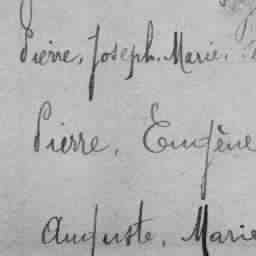 Pierre, Joseph, Marie,
Pierre, Eugène
Auguste, Marie